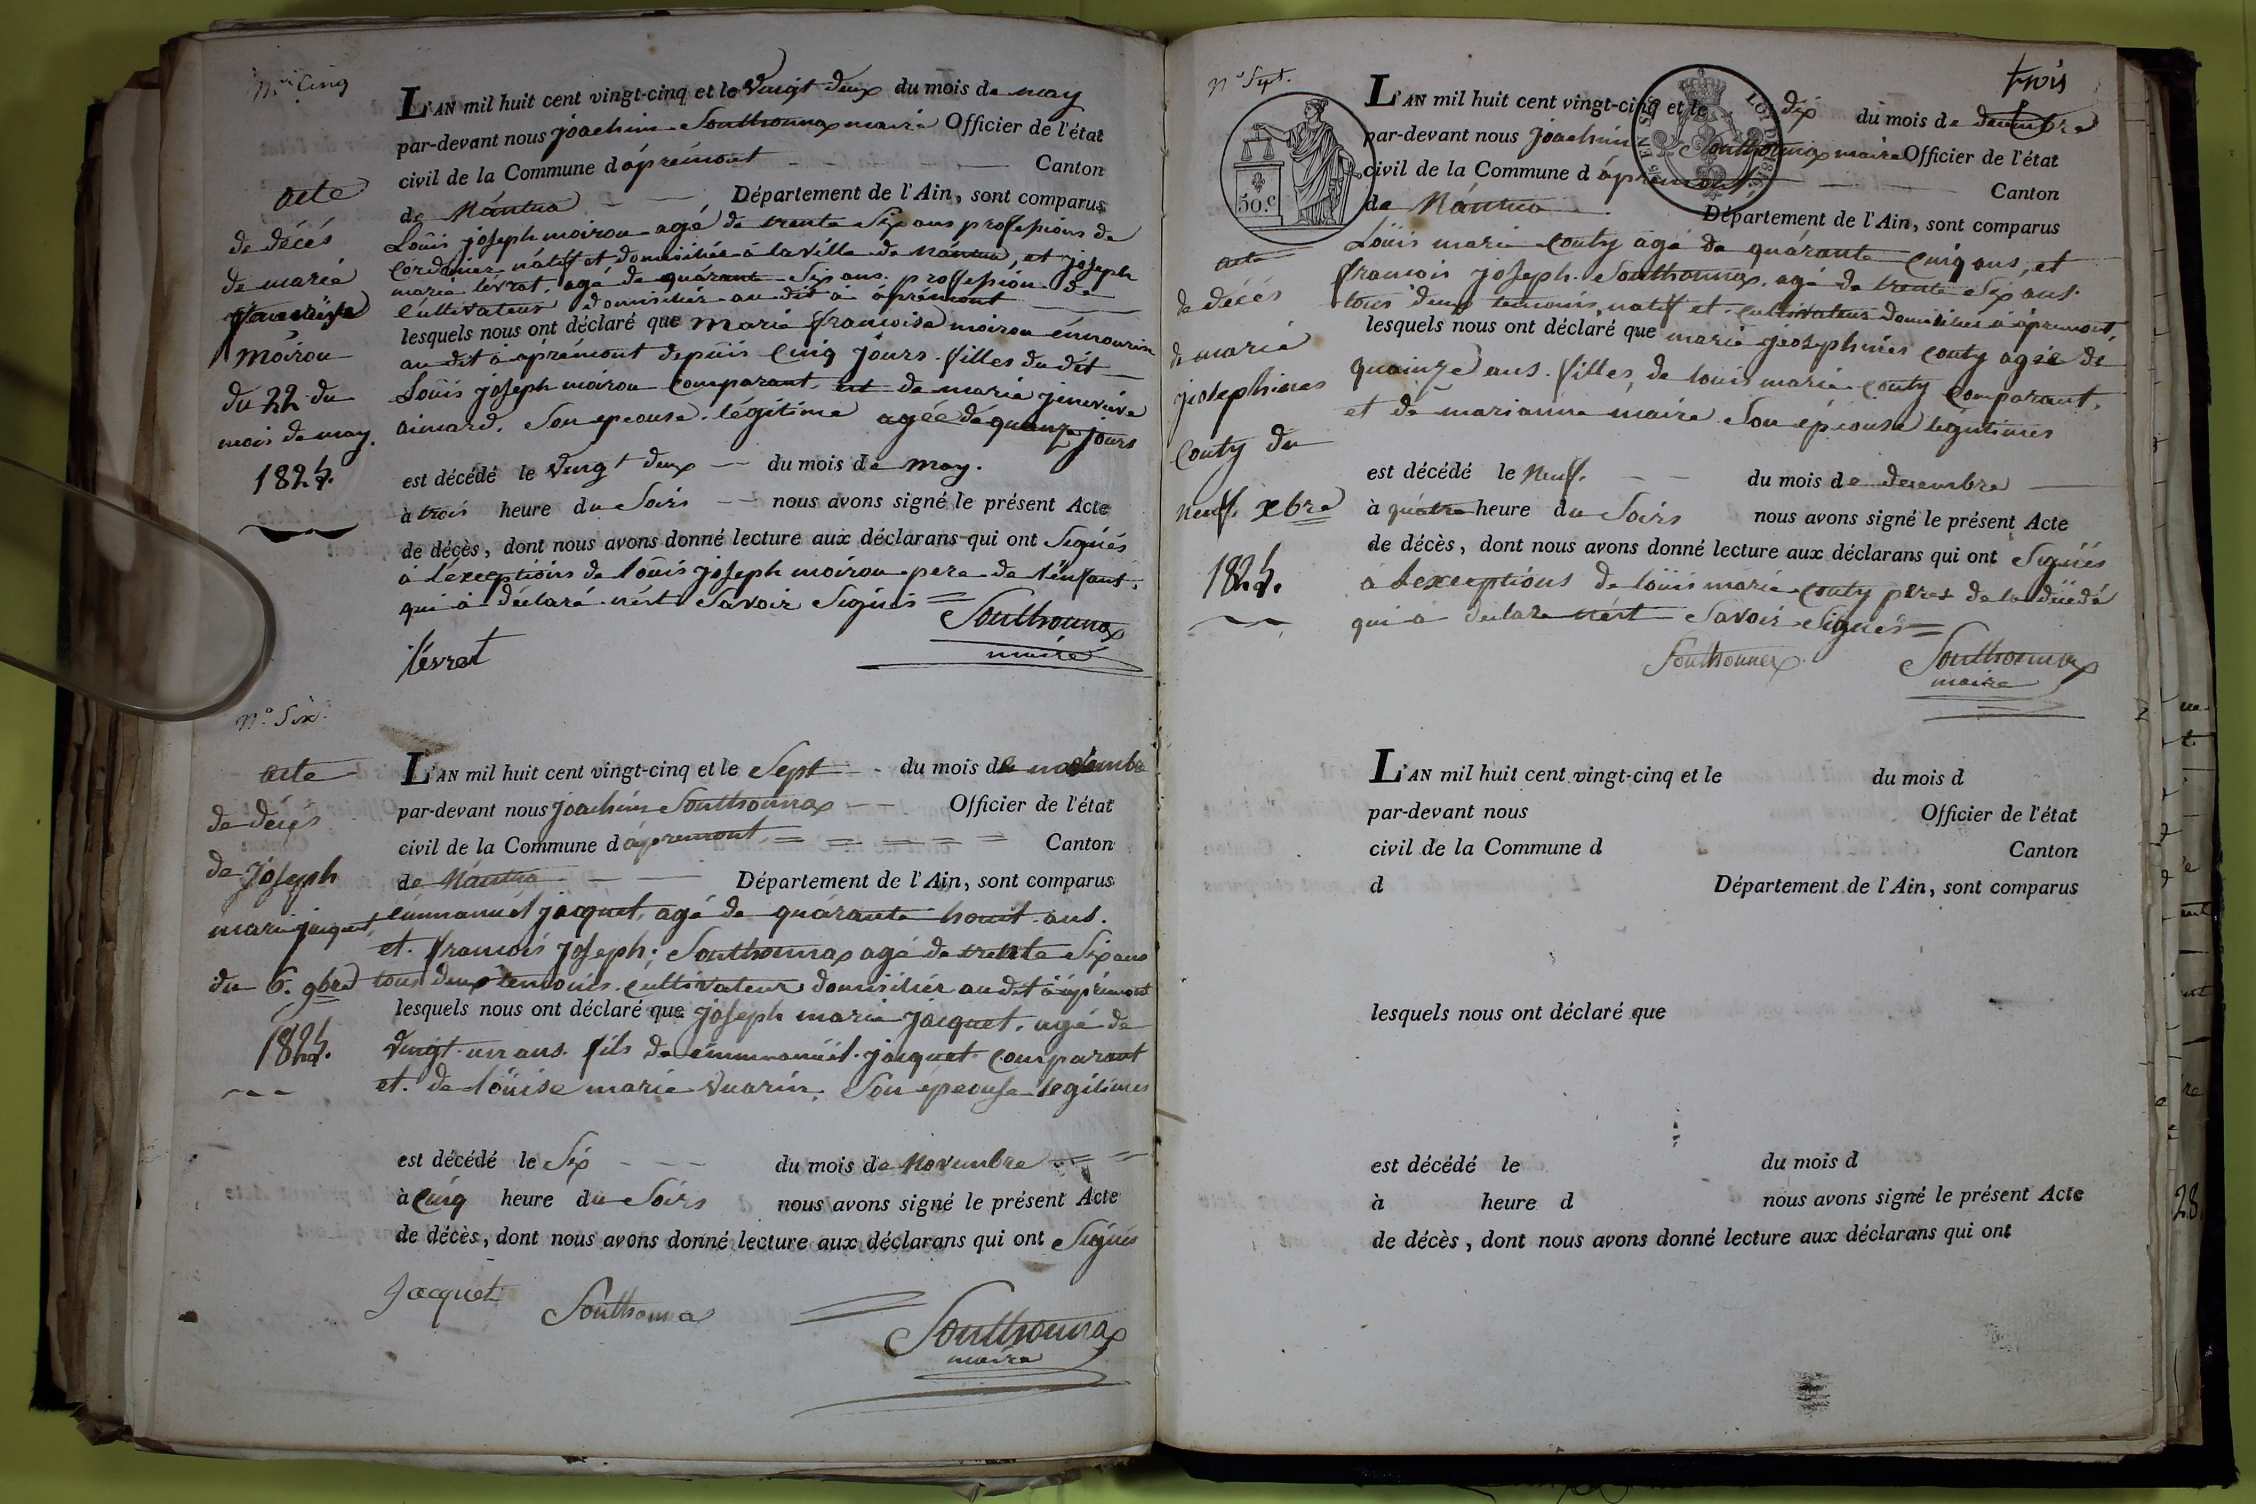 No Cinq
acte
de décés
de marie
francoise
moirou
du 22 du
mois de may.
1825.
L'AN mil huit cent vingt-cinq et le vingt deux du mois de may
par-devant nous joachim Southonnax maire Officier de l'état
civil de la Commune d'áprémont Canton
de Nántua Département de l'Ain, sont comparus
Loüis joseph moirou agé de trente Six ans professions de
Cordonier nátif et domicilié à la ville de nántua, et joseph
marie lévrat, agé de quárante Six ans. proffession de
Cultivateur domicilier au dit à áprémont
lesquels nous ont déclaré que marie francoise moirou énnourice
au dit à áprémont depuis Cinq jours. filles du dit
Loüis joseph moirou Comparant et de marie jinevieve
aimard. Son epeouse. légitime agée dé quinze jours
est décédé le vingt deux du mois de may.
à trois heure du Soirs nous avons signé le présent Acte
de décès, dont nous avons donné lecture aux déclarans qui ont Signés
á l'éxceptions de loüis joseph moirou pere de l'énfant.
qui à déclaré nést Savoir Signés
Southonnax
maire
lévrat
No Six.
acte
de décés
de joseph
marie jacquet
du 6. 9bre
1825.
L'AN mil huit cent vingt-cinq et le Sept du mois de novémbre
par-devant nous joachim Southonnax Officier de l'état
civil de la Commune d'ápremont Canton
de Nántua Département de l'Ain, sont comparus
émmanuél jacquet, agé de quárante houit ans.
et francois joseph; Southonnax agé de trente Six ans
tous deux temoins. cultivateur domicilier au dit à áprémont
lesquels nous ont déclaré que joseph marie jacquet. agé de
vingt un ans. fils de émmanuél. jacquet Comparant
et. de loüise marie vuarin. Son épeouse légitimes
est décédé le Six du mois de Novembre
à Cinq heure du Soirs nous avons signé le présent Acte
de décès, dont nous avons donné lecture aux déclarans qui ont Signés
Jacquet Southonna
Southonnax
maire
trois
No Sept.
50.c
acte
de décés
de marie
josephines
Couty du
neuf. xbre
1825.
L'AN mil huit cent vingt-cinq et le dix du mois de decembre
par-devant nous joachim Southonnax maire Officier de l'état
civil de la Commune d ápremont Canton
de Nántua Département de l'Ain, sont comparus
Loüis marie Couty agé de quárante cinq ans, et
francois joseph. Southonnax, agé de trente Six ans.
tous deux temoins, natif et cultivateur domicilies à áprémont
lesquels nous ont déclaré que marie jéosephines couty agée dé
quainze ans. filles, de louis marie couty Comparant.
et dé marianne maire Son épeouse légitimes
est décédé le neuf. du mois de decembre
à quátre heure du Soirs nous avons signé le présent Acte
de décès, dont nous avons donné lecture aux déclarans qui ont Signés
á l'exceptions de loüis marie couty peres de la
qui à declare nést Savoir Signés
Southonnax Southonnax
maire
L'AN mil huit cent vingt-cinq et le du mois d
par-devant nous Officier de l'état
civil de la Commune d Canton
d Département de l'Ain, sont comparus
lesquels nous ont déclaré que
est décédé le du mois d
à heure d nous avons signé le présent Acte
de décès, dont nous avons donné lecture aux déclarans qui ont
28